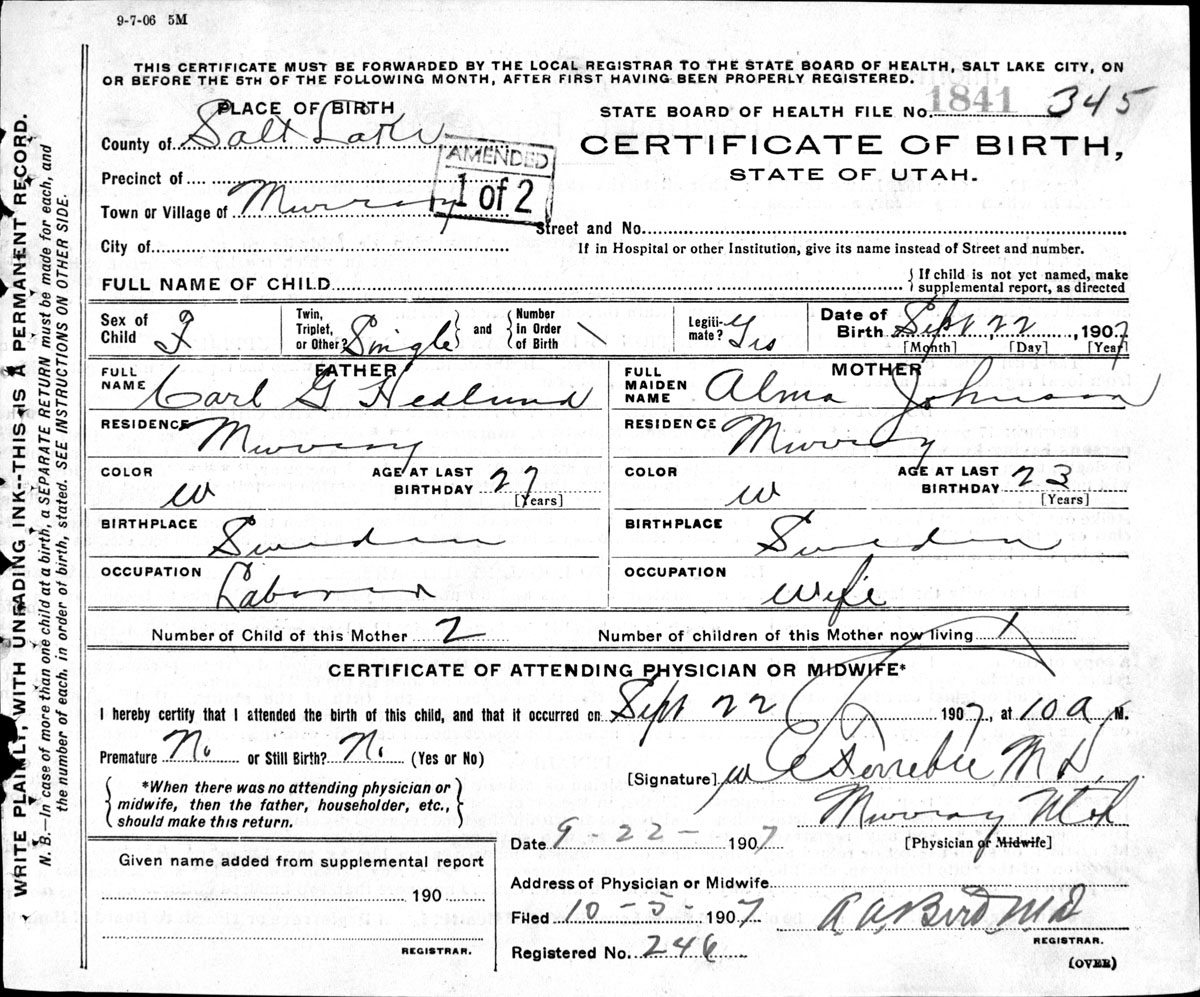 9-7-06 5M
THIS CERTIFICATE MUST BE FORWARDED BY THE LOCAL REGISTRAR TO THE STATE BOARD OF HEALTH, SALT LAKE CITY, ON
OR BEFORE THE 5TH OF THE FOLLOWING MONTH, AFTER FIRST HAVING BEEN PROPERLY REGISTERED.
PLACE OF BIRTH
STATE BOARD OF HEALTH FILE No. 1841 345
County of Salt Lake
CERTIFICATE OF BIRTH,
STATE OF UTAH.
AMENDED
1 of 2
Precinct of
Town or Village of Murray
Street and No.
City of
If in Hospital or other Institution, give its name instead of Street and number.
FULL NAME OF CHILD
{If child is not yet named, make
supplemental report, as directed
Sex of Child F
Twin, Triplet, or Other? Single } and { Number in Order of Birth \
Legiti-mate? Yes
Date of Birth Sept 22, 1907
[Month] [Day] [Year]
FATHER
FULL NAME Carl G Hedlund
RESIDENCE Murray
COLOR W
AGE AT LAST BIRTHDAY 27
[Years]
BIRTHPLACE Sweden
OCCUPATION Laborer
MOTHER
FULL MAIDEN NAME Alma Johnson
RESIDENCE Murray
COLOR W
AGE AT LAST BIRTHDAY 23
[Years]
BIRTHPLACE Sweden
OCCUPATION Wife
Number of Child of this Mother 2
Number of children of this Mother now living 1
CERTIFICATE OF ATTENDING PHYSICIAN OR MIDWIFE*
I hereby certify that I attended the birth of this child, and that it occurred on Sept 22 1907, at 10 a M.
Premature No or Still Birth? No (Yes or No)
{*When there was no attending physician or
midwife, then the father, householder, etc.,
should make this return.}
[Signature] M D,
Murray Utah
Date 9-22- 1907
[Physician or Midwife]
Given name added from supplemental report
190
REGISTRAR.
Address of Physician or Midwife
Filed 10-5- 1907
A. A. Bird M.D
REGISTRAR.
Registered No. 246
(OVER)
WRITE PLAINLY, WITH UNFADING INK—THIS IS A PERMANENT RECORD.
N. B.—In case of more than one child at a birth, a SEPARATE RETURN must be made for each, and
the number of each, in order of birth, stated. SEE INSTRUCTIONS ON OTHER SIDE.